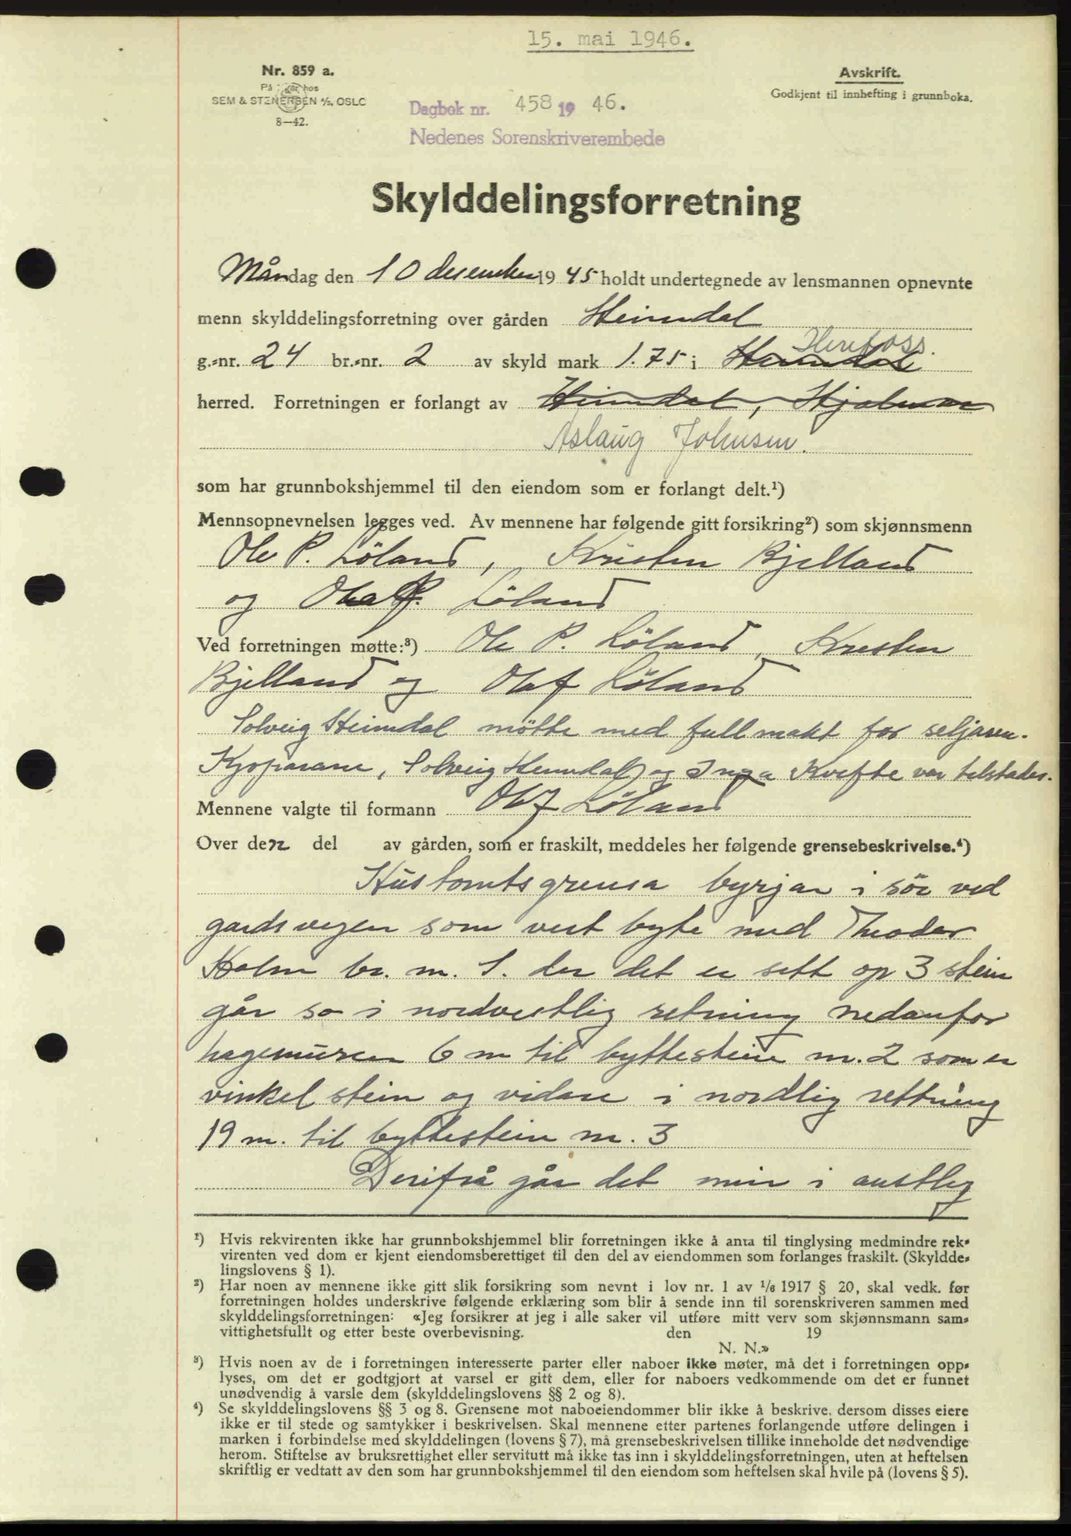 15. mai 1946.
Nr. 859 a.
På lager hos
SEM & STENERSEN A/S, OSLO
8—42.
Avskrift.
Godkjent til innhefting i grunnboka.
Dagbok nr. 458 19 46.
Nedenes Sorenskriverembede
Skylddelingsforretning
Måndag den 10 desember 19 45 holdt undertegnede av lensmannen opnevnte
menn skylddelingsforretning over gården Heimdal
Herefoss.
g.-nr. 24 br.-nr. 2 av skyld mark 1.75 i Heimdal
herred. Forretningen er forlangt av Heimdal, Hjalmar
Aslaug Johnsen.
som har grunnbokshjemmel til den eiendom som er forlangt delt.¹)
Mennsopnevnelsen legges ved. Av mennene har følgende gitt forsikring²) som skjønnsmenn
Ole P. Løland, Kristen Bjelland
og Olaf Løland
Ved forretningen møtte:³) Ole P. Løland, Kristen
Bjelland og Olaf Løland
Solveig Heimdal møtte med fullmakt for seljaren.
Kjøparane, Solveig Heimdal og Inga Kvifte var tilstades.
Mennene valgte til formann Olaf Løland
Over den del av gården, som er fraskilt, meddeles her følgende grensebeskrivelse.⁴)
Hustomtsgrensa byrjar i sør ved
gardsvegen som vest byte med Theodor
Holm br. nr. 1. der det er sett op 3 stein
går so i nordvestlig retning nedanfor
hagemuren 6 m til byttestein nr. 2 som er
vinkelstein og vidare i nordlig rettning
19 m. til byttestein nr. 3
Derifrå går det minn i austleg
¹) Hvis rekvirenten ikke har grunnbokshjemmel blir forretningen ikke å anta til tinglysing medmindre rek-
virenten ved dom er kjent eiendomsberettiget til den del av eiendommen som forlanges fraskilt. (Skyldde-
lingslovens § 1).
²) Har noen av mennene ikke gitt slik forsikring som nevnt i lov nr. 1 av 1/6 1917 § 20, skal vedk. før
forretningen holdes underskrive følgende erklæring som blir å sende inn til sorenskriveren sammen med
skylddelingsforretningen: «Jeg forsikrer at jeg i alle saker vil utføre mitt verv som skjønnsmann sam-
vittighetsfullt og etter beste overbevisning. den 19
N. N.»
³) Hvis noen av de i forretningen interesserte parter eller naboer ikke møter, må det i forretningen opp-
lyses, om det er godtgjort at varsel er gitt dem, eller for naboers vedkommende om det er funnet
unødvendig å varsle dem (skylddelingslovens §§ 2 og 8).
⁴) Se skylddelingslovens §§ 3 og 8. Grensene mot naboeiendommer blir ikke å beskrive, dersom disses eiere
ikke er til stede og samtykker i beskrivelsen. Skal mennene etter partenes forlangende utføre delingen i
marken i forbindelse med skylddelingen (lovens § 7), må grensebeskrivelsen tillike inneholde det nødvendige
herom. Stiftelse av bruksrettighet eller servitutt må ikke tas inn i skylddelingsforretningen, uten at heftelsen
skriftlig er vedtatt av den som har grunnbokshjemmel til den eiendom som heftelsen skal hvile på (lovens § 5).